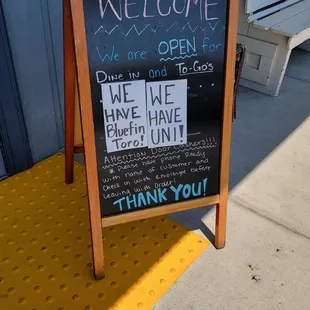 WELCOME
We are OPEN for
Dine in and To-Go's
WE
HAVE
Bluefin
Toro!
WE
HAVE
UNI!
Attention Door Dashers!!!
* please have phone Ready
with name of customer and
check in with employee before
leaving with order!
THANK YOU!